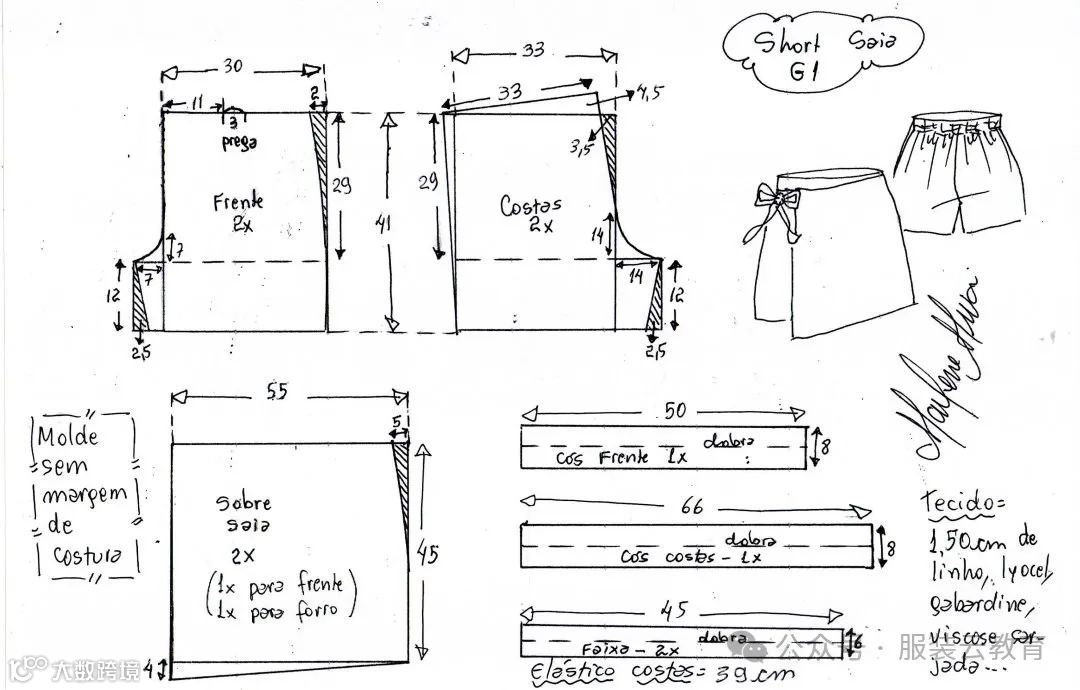 Short Saia
G1
30
11
2
3
prega
29
Frente
2x
7
7
12
2,5
41
33
33
4,5
3,5
29
Costas
2x
14
14
12
2,5
Molde
sem
margem
de
costura
55
5
Sobre
saia
2x
(1x para frente
1x para forro)
45
4
50
dobra
Cos Frente 1x
8
66
dobra
Cos costas - 1x
8
45
dobra
Faixa - 2x
6
Elástico costas = 39 cm
Tecido =
1,50 cm de
linho, lyocel,
gabardine,
viscose sar-
jada...
公众号 · 服装云教育
大数跨境